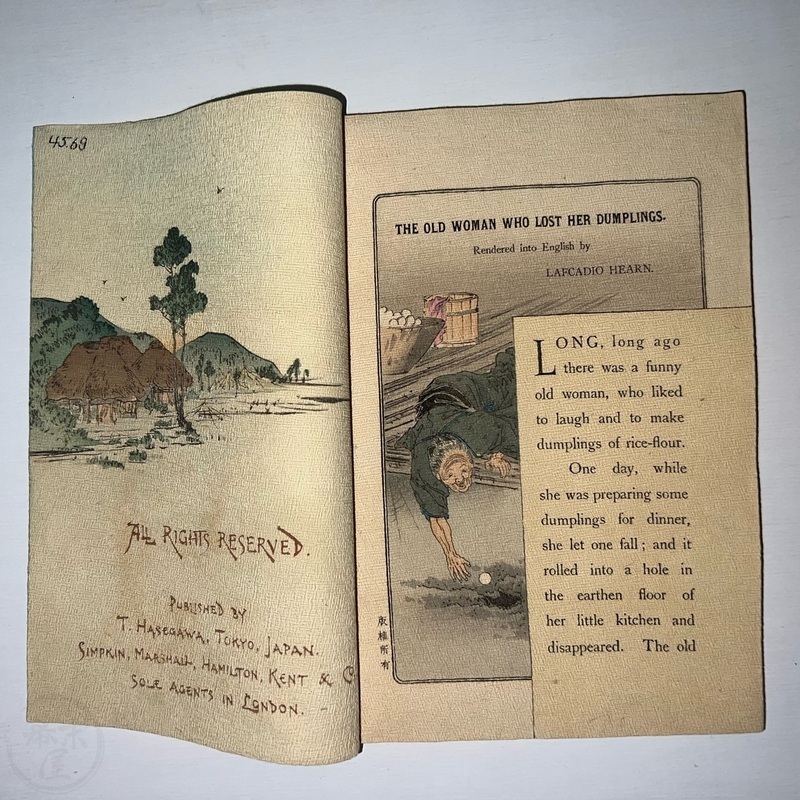 4569
ALL RIGHTS RESERVED.
PUBLISHED BY
T. HASEGAWA, TOKYO, JAPAN.
SIMPKIN, MARSHALL, HAMILTON, KENT & C
SOLE AGENTS IN LONDON.
THE OLD WOMAN WHO LOST HER DUMPLINGS.
Rendered into English by
LAFCADIO HEARN.
LONG, long ago
there was a funny
old woman, who liked
to laugh and to make
dumplings of rice-flour.
One day, while
she was preparing some
dumplings for dinner,
she let one fall; and it
rolled into a hole in
the earthen floor of
her little kitchen and
disappeared. The old
版權所有